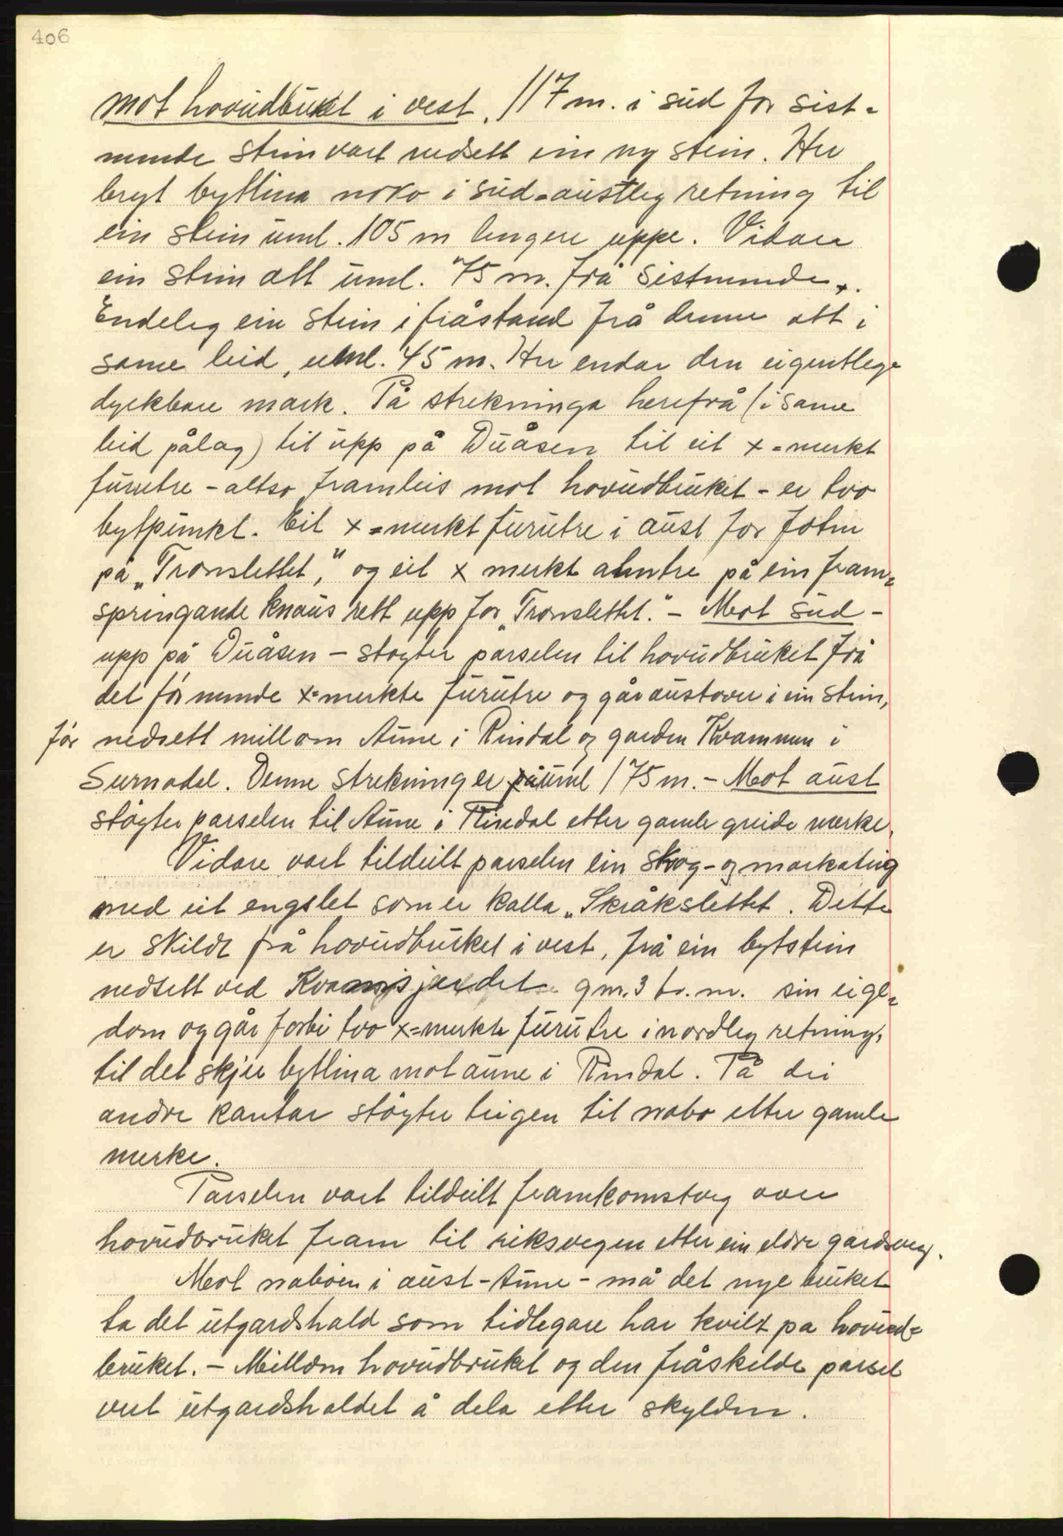 406
mot hovudbuket i vest. 117 m. i süd for sist=
nemde stein vart nedsett ein ny stein. Her
bryt bytlina noko i süd-austleg retning til
ein stein uml. 105 m lengere uppe. Vidare
ein stein att uml. 75 m. frå sistnemde.
Endeleg ein stein i fråstand frå denne att i
same leid, uml. 45 m. Her endar den eigentlege
dyrkbare mark. På strekninga herefrå (i same
leid pålag) til upp på Duåsen til eit x=merkt
furutre - altso framleis mot hovudbruket - er tvo
bytpunkt. Eit x=merkt furutre i aust for foten
på „Tronslettet," og eit x merkt almtre på ein fram=
springande knaus rett upp for „Tronslettet." - Mot süd -
upp på Duåsen - støyter parselen til hovudbruket frå
det fornemde x=merkte furutre og går austover i ein stein,
før nedsett millom Aune i Rindal og garden Kvammen i
Surnadal. Denne strekning er uml 175 m. - Mot aust
støyter parselen til Aune i Rindal etter gamle greide merke.
Vidare vart tildeilt parselen ein skog- og markateig
med eit engslet som er kalla „Skråkslettet. Dette
er skildt frå hovudbruket i vest, frå ein bytstein
nedsett ved gnr. 3 br. nr. sin eige=
dom og går forbi tvo x=merkte furutre i nordleg retning,
til det skjer bytlina mot Aune i Rindal. På dei
andre kantar støyter teigen til nabo etter gamle
merke.
Parselen vart tildeilt framkomstveg over
hovudbruket fram til riksvegen etter ein eldre gardsveg.
Mot naboen i aust - Aune - må det nye bruket
ta det utgardshald som tidlegare har kvilt på hovud=
bruket. - Millom hovudbruket og den fråskilde parsel
vert utgardshaldet å dela etter skylden.